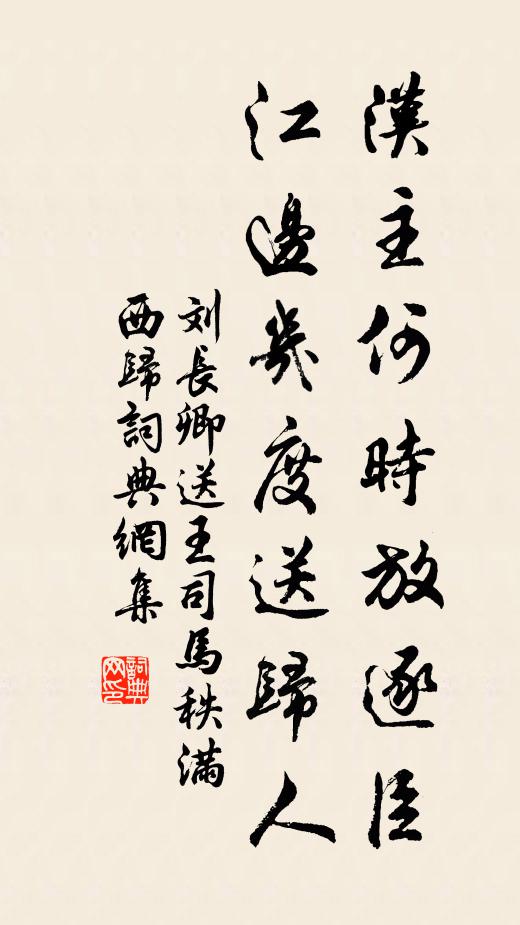 漢主何時放逐臣
江邊幾度送歸人
刘長卿送王司馬秩滿
西歸詞典網集
詞典网印